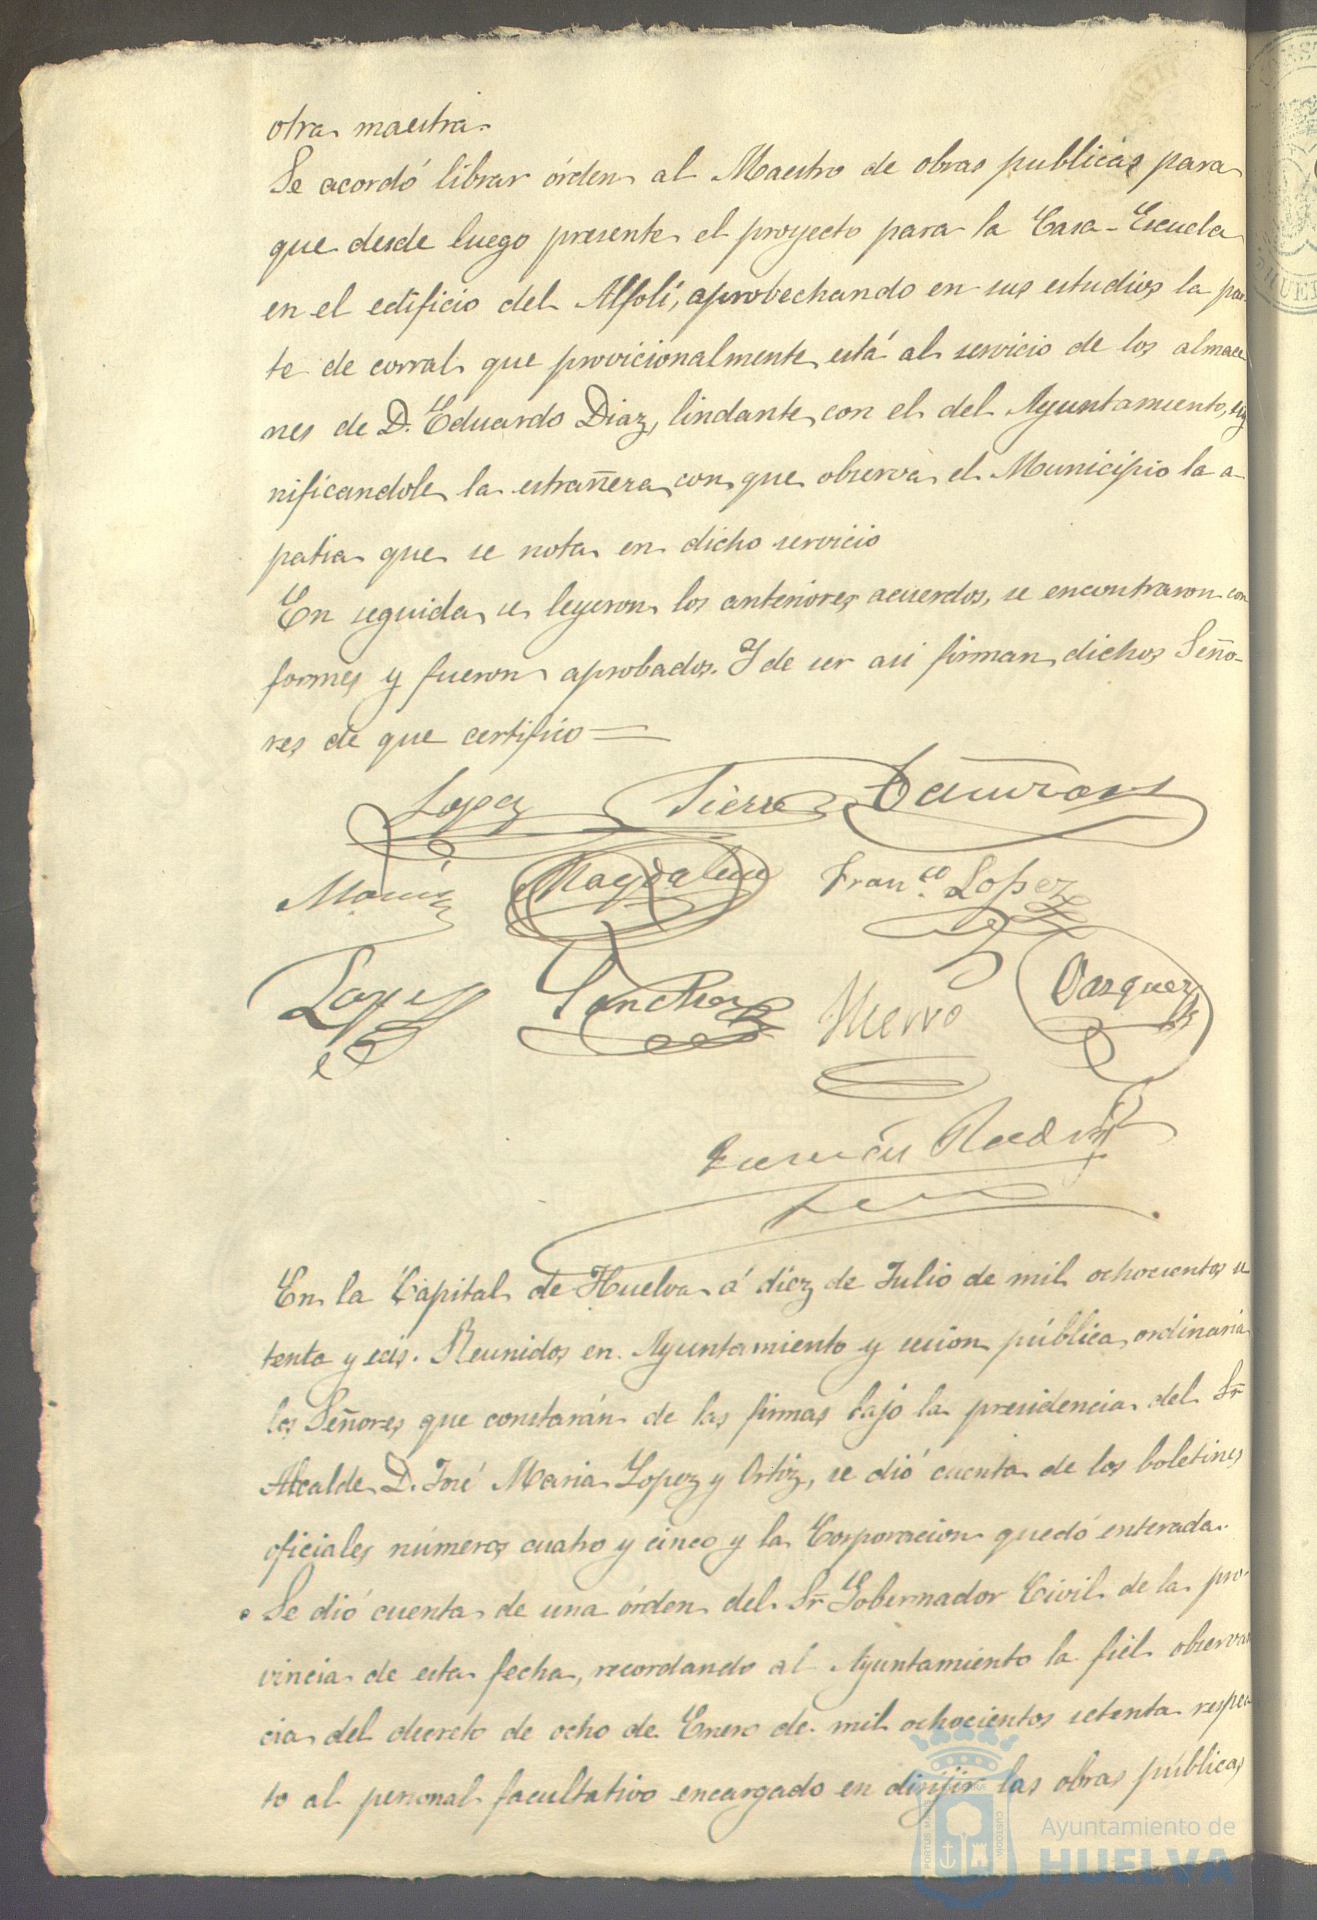 otra maestra.
Se acordó librar órden al Maestro de obras publicas para
que desde luego presente el proyecto para la Casa-Escuela
en el edificio del Alfolí, aprobechando en sus estudios la par-
te de corral que provicionalmente está al servicio de los almace
nes de D. Eduardo Diaz, lindante con el del Ayuntamiento, sig
nificandole la estrañeza con que observa el Municipio la a-
patia que se nota en dicho servicio
En seguida se leyeron los anteriores acuerdos, se encontraron con
formes y fueron aprobados. Y de ser asi firman dichos Seño-
res de que certifico=
Lopez Sierra
Magdalena Franco. Lopez
Lopez Sanchez Hierro Vazquez
En la Capital de Huelva á diez de Julio de mil ochocientos se
tenta y seis. Reunidos en Ayuntamiento y secion pública ordinaria
los Señores que constarán de las firmas bajo la presidencia del Sr.
Alcalde D. José Maria Lopez y Ortiz, se dió cuenta de los boletines
oficiales números cuatro y cinco y la Corporacion quedó enterada.
Se dió cuenta de una órden del Sr. Gobernador Civil de la pro-
vincia de esta fecha, recordando al Ayuntamiento la fiel observan
cia del decreto de ocho de Enero de mil ochocientos setenta respec
to al personal facultativo encargado en dirijir las obras públicas
Ayuntamiento de
HUELVA